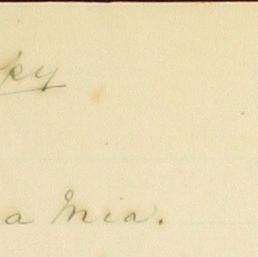 py
a Mia.